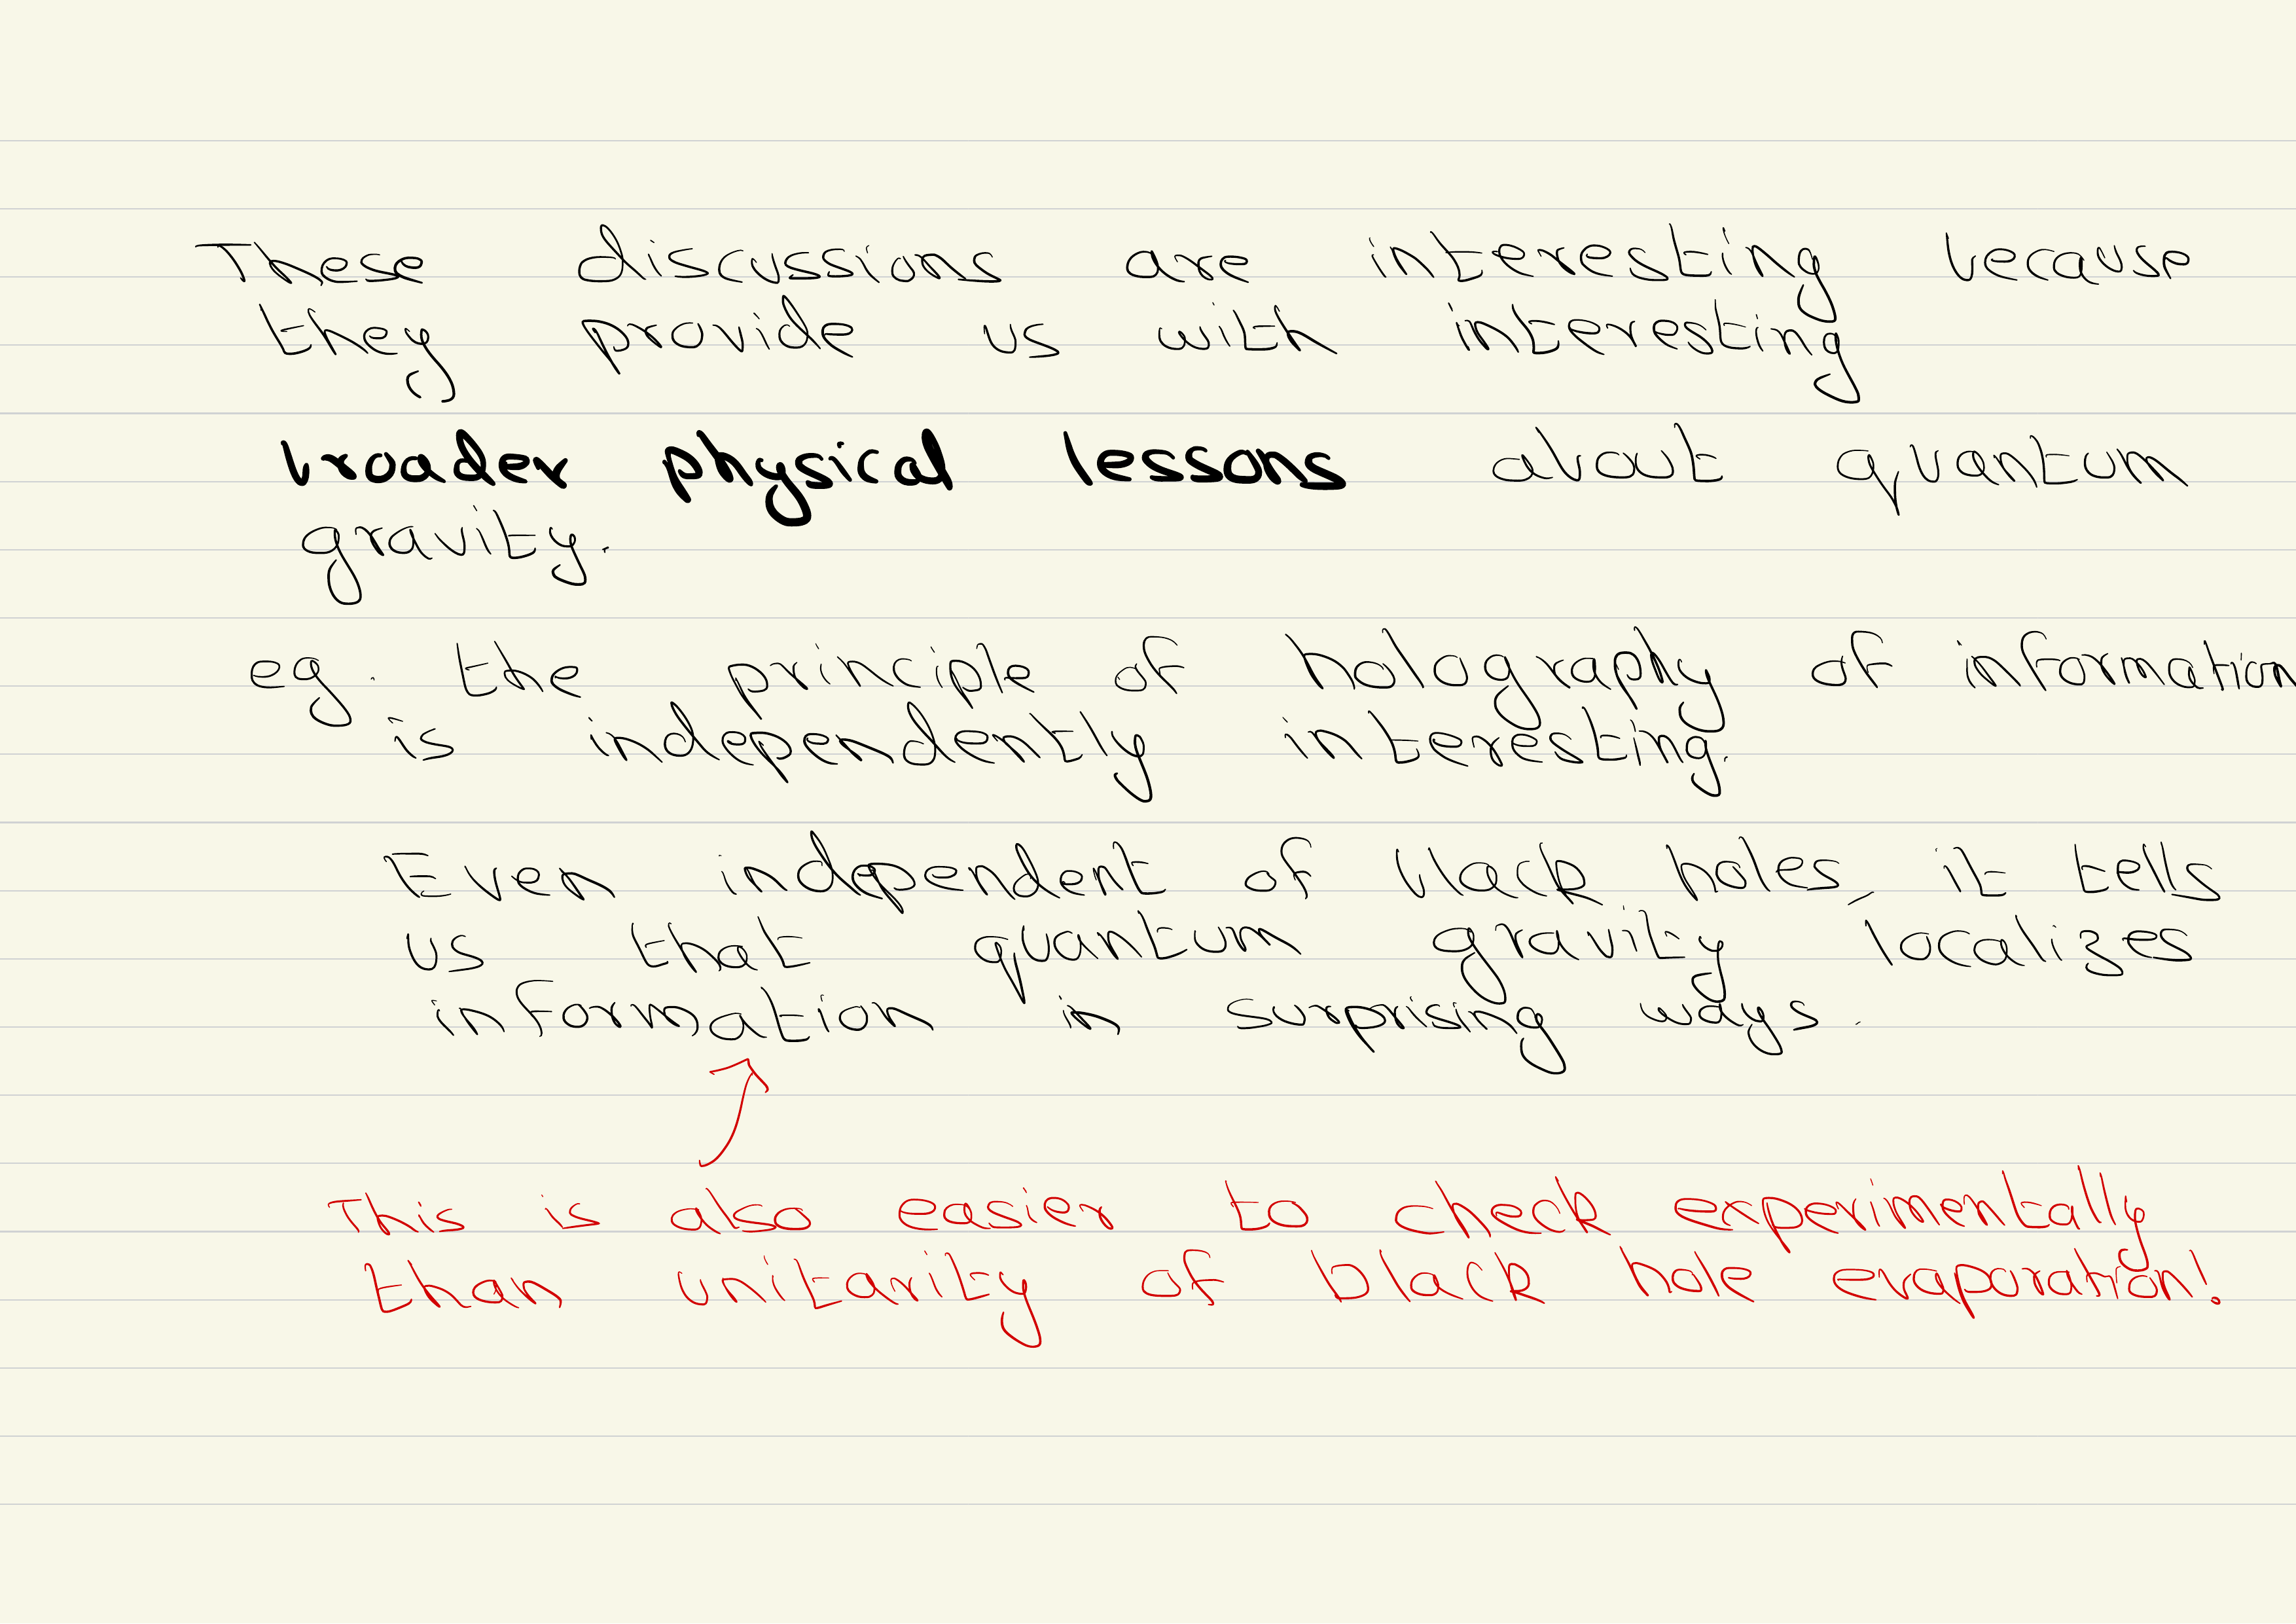 These discussions are interesting because
they provide us with interesting
broader physical lessons about quantum
gravity.
eg. the principle of holography of information
is independently interesting.
Even independent of black holes, it tells
us that quantum gravity localizes
information in surprising ways.
This is also easier to check experimentally
than unitarity of black hole evaporation!